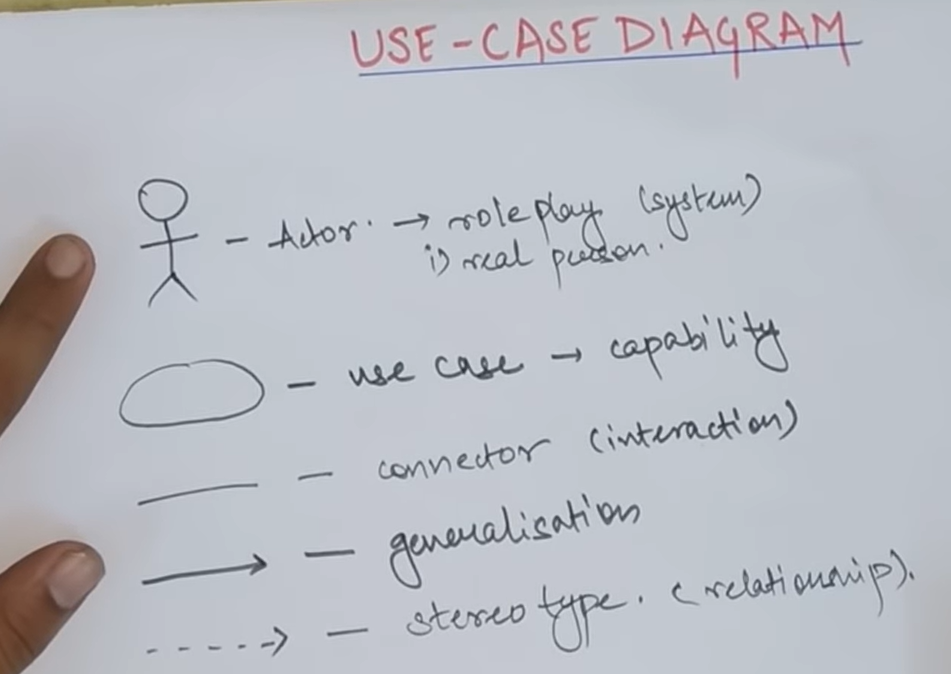 USE-CASE DIAGRAM
- Actor. → roleplay (system)
i) real person.
- use case → capability
- connector (interaction)
- generalisation
- stereotype. (relationship).